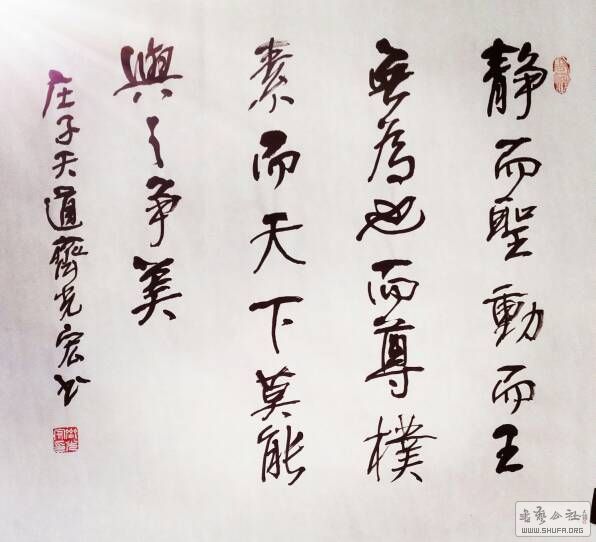 静而聖動而王
無為也而尊樸
素而天下莫能
與之争美
庄子天道齊光宏书
书艺公社
WWW.SHUFA.ORG